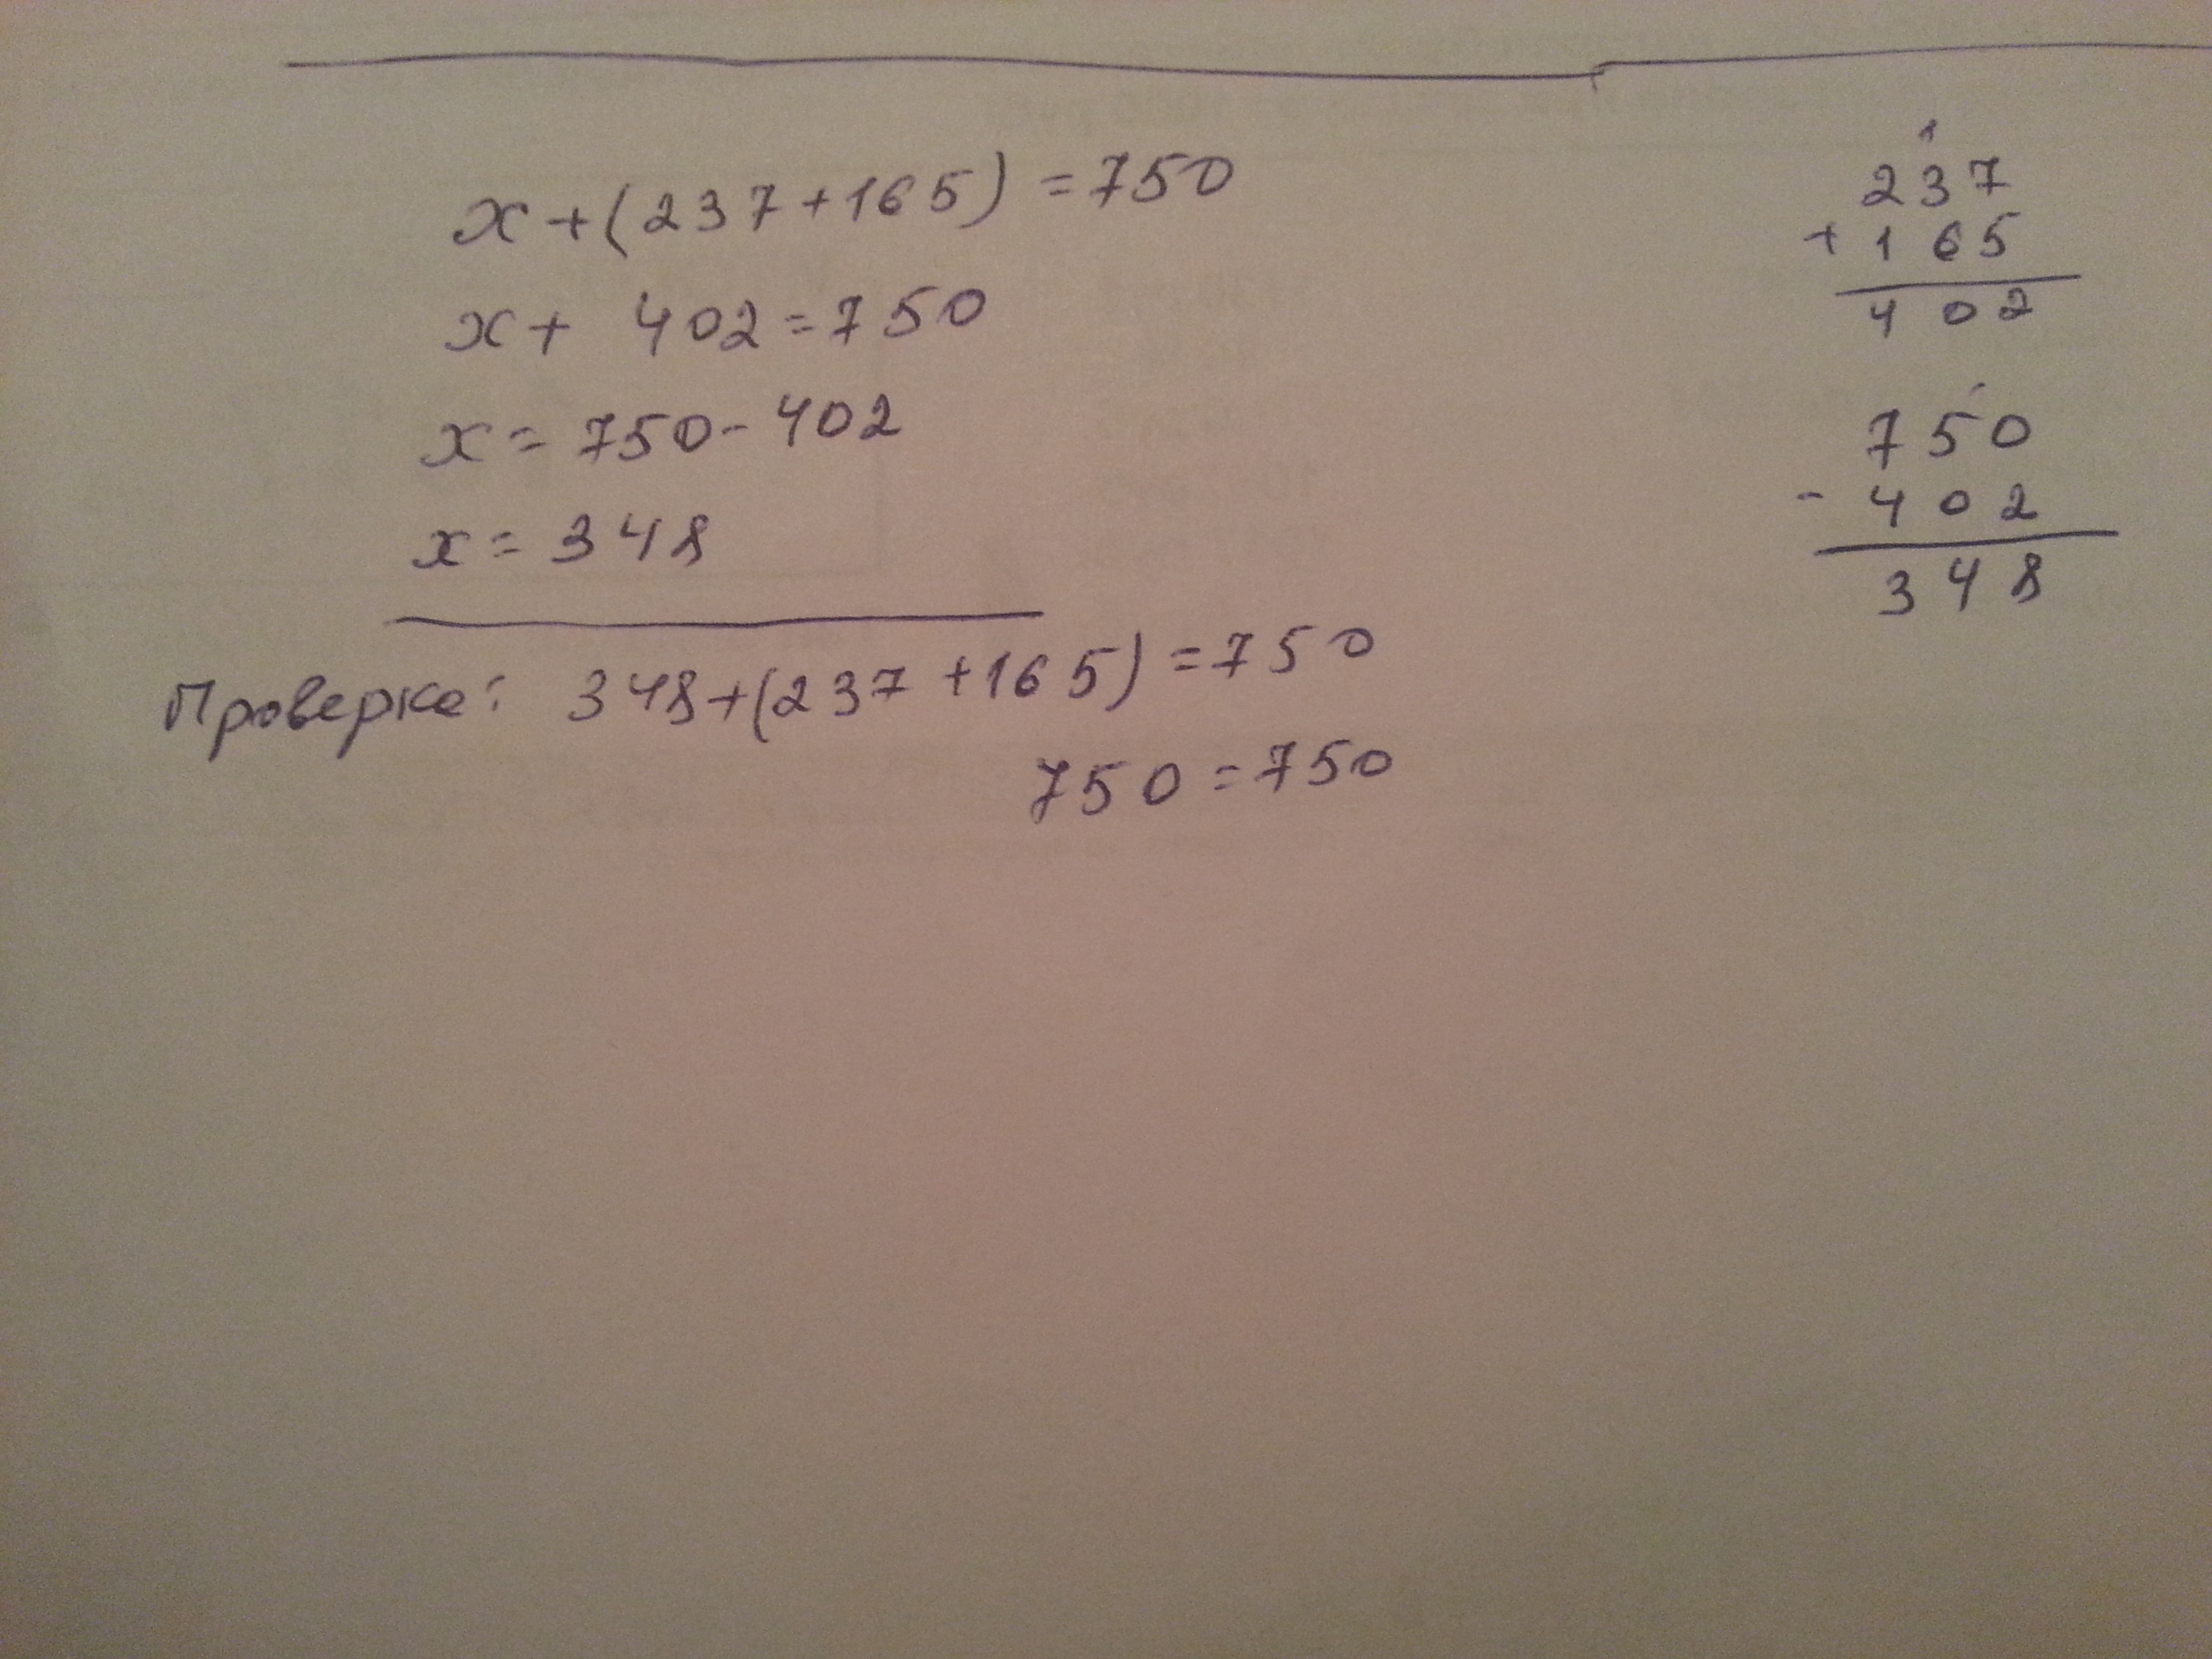 x+(237+165)=750
x+ 402=750
x=750-402
x=348
Проверка: 348+(237+165)=750
750=750
1
237
+165
402
750
-402
348